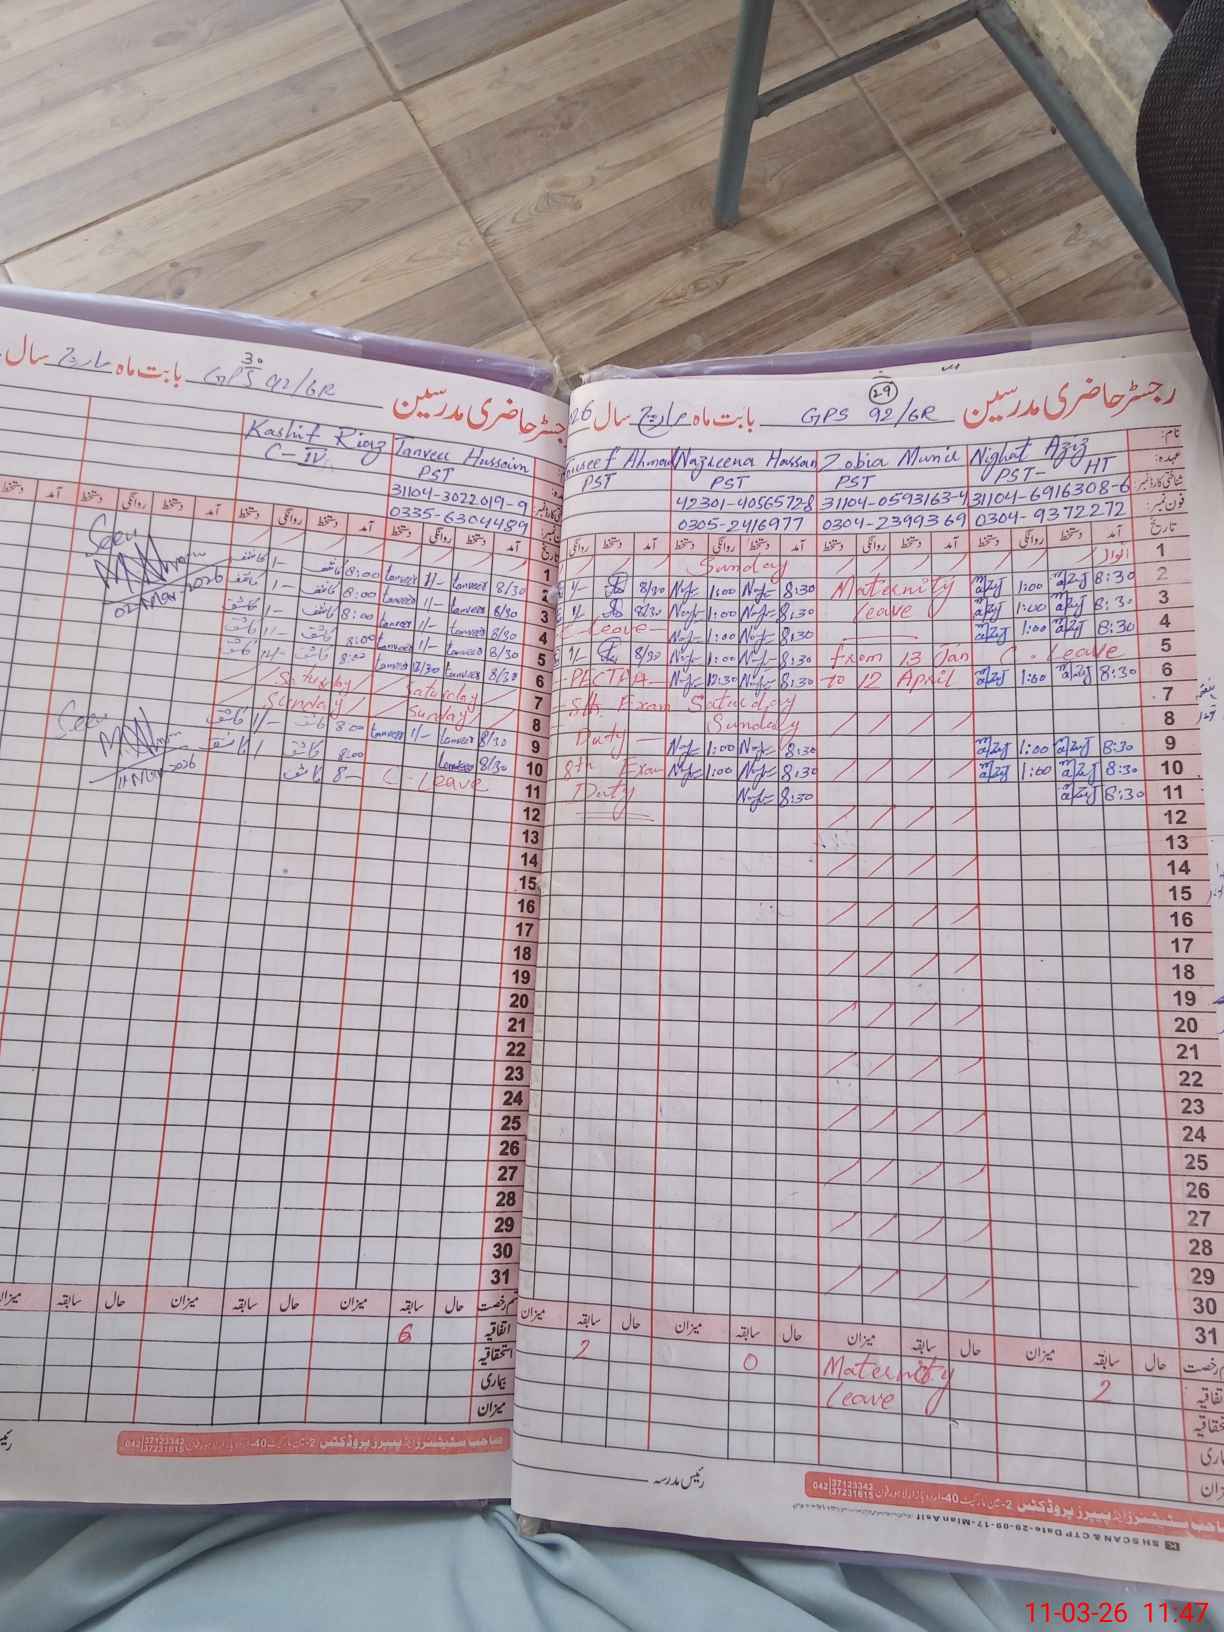 رجسٹر حاضری مدرسین GPS 92/6R بابت ماہ مارچ سال 26
29
نام: Nighat Aziz Zobia Munir Nazreena Hassan Ahmad
عہدہ: PST- HT PST PST PST
شناختی کارڈ نمبر 31104-6916308-6 31104-0593163-4 42301-4056572-8
فون نمبر: 0304-9372272 0304-2399369 0305-2416977
تاریخ آمد دستخط روانگی دستخط آمد دستخط روانگی دستخط آمد دستخط روانگی دستخط آمد دستخط روانگی
1 اتوار Sunday
2 8:30 1:00 Maternity 8:30 1:00 8/30
3 8:30 1:00 Leave 8:30 1:00 8/30
4 8:30 1:00 8:30 1:00 C-Leave
5 C-Leave From 13 Jan 8:30 1:00 8/30
6 8:30 1:00 to 12 April 8:30 12:30 PECTAA
7 Saturday Exam
8 Sunday Duty
9 8:30 1:00 8:30 1:00
10 8:30 1:00 8:30 1:00 8th Exam
11 8:30 8:30 Duty
12
13
14
15
16
17
18
19
20
21
22
23
24
25
26
27
28
29
30
31
حال سابقہ میزان حال سابقہ میزان حال سابقہ میزان حال سابقہ میزان
اتفاقیہ 2 Maternity 0 2
Leave
رئیس مدرسہ
042 37123342
37231615
11-03-26 11:47
رجسٹر حاضری مدرسین GPS 92/6R بابت ماہ مارچ سال
30
Tanveer Hussain Kashif Riaz
PST C-IV
31104-3022019-9
0335-6304489
آمد دستخط روانگی دستخط آمد دستخط روانگی دستخط آمد دستخط روانگی دستخط آمد دستخط
1
2 8/30 tanveer 1/- tanveer 8:00 کاشف 1/- کاشف
3 8/30 tanveer 1/- tanveer 8:00 کاشف 1/- کاشف
4 8/30 tanveer 1/- tanveer 8:00 کاشف 1/- کاشف
5 8/30 tanveer 1/- tanveer 8:00 کاشف 1/- کاشف
6 8/30 tanveer 12/30 tanveer 8:00 کاشف کاشف
7 Saturday Saturday
8 Sunday Sunday
9 8/30 tanveer 1/- tanveer 8:00 کاشف 1/- کاشف
10 8/30 tanveer 8:00 کاشف کاشف
11 C-Leave 8- کاشف
12
13
14
15
16
17
18
19
20
21
22
23
24
25
26
27
28
29
30
31
Seen
02 Mar 2026
Seen
11 Mar 2026
قسم رخصت حال سابقہ میزان حال سابقہ میزان حال سابقہ میزان
اتفاقیہ 6
استحقاقیہ
بیماری
میزان
042 37123342
37231615